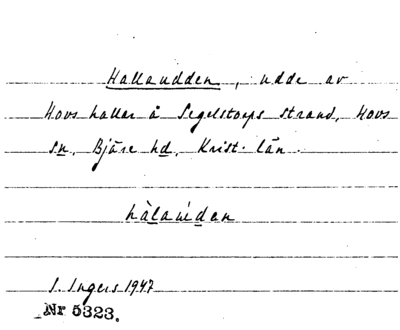 Hallaudden, udde av
Hovs hallar å Segelstorps strand, Hovs
sn, Bjäre hd, Krist. län.
hàlaúdan
I. Ingers 1947
Nr 5323.